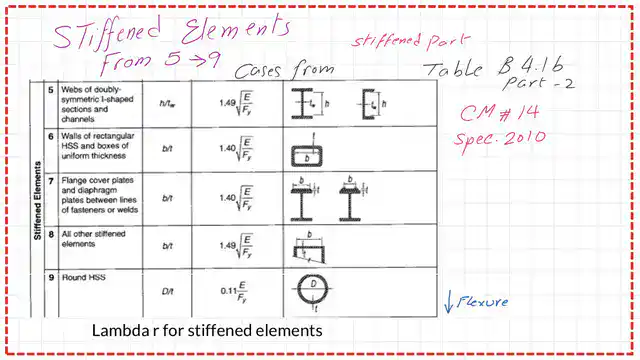 STiffened Elements
From 5→9
stiffened part
Cases from Table B4.1b
Part-2
CM#14
Spec. 2010
Stiffened Elements
5 Webs of doubly-symmetric I-shaped sections and channels h/tw 1.49√E/Fy tw h tw h
6 Walls of rectangular HSS and boxes of uniform thickness b/t 1.40√E/Fy t b
7 Flange cover plates and diaphragm plates between lines of fasteners or welds b/t 1.40√E/Fy b t b t
8 All other stiffened elements b/t 1.49√E/Fy b t
9 Round HSS D/t 0.11E/Fy D t
↓ Flexure
Lambda r for stiffened elements